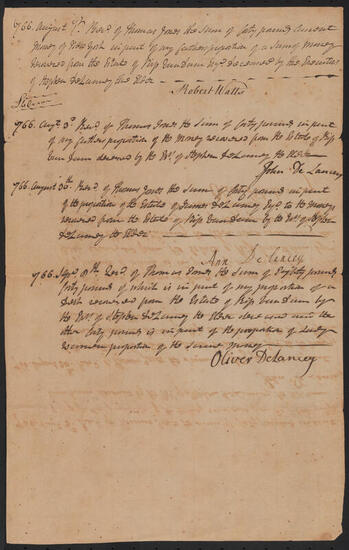 1766. August 1st. Rec'd of Thomas Jones the Sum of forty pounds Current
money of New York in part of my fathers proportion of a Sum of money
recovered from the Estate of Rip Van Dam Esqr. deceased by the Executors
of Stephen DeLancey the Elder
Robert Watts
£40
1766. Augt. 5th. Rec'd of Thomas Jones the Sum of forty pounds in part
of my fathers proportion of the Money recovered from the Estate of Rip
Van Dam deceased by the Exr. of Stephen DeLancey the Elder
John De Lancey
1766. August 30th. Rec'd of Thomas Jones the Sum of forty pounds in part
of the proportion of the Estate of James DeLancey Esqr. to the Money
recovered from the Estate of Rip Van Dam by the Exr. of Stephen
DeLancey the Elder
Ann DeLancey
1766. Rec'd of Thomas Jones the Sum of Eighty pounds
forty pounds of which is in part of my proportion of a
debt recovered from the Estate of Rip Van Dam by
the Exr. of Stephen DeLancey the Elder deceased and the
other forty pounds is in part of the proportion of Lady
proportion of the Same money
Oliver DeLancey